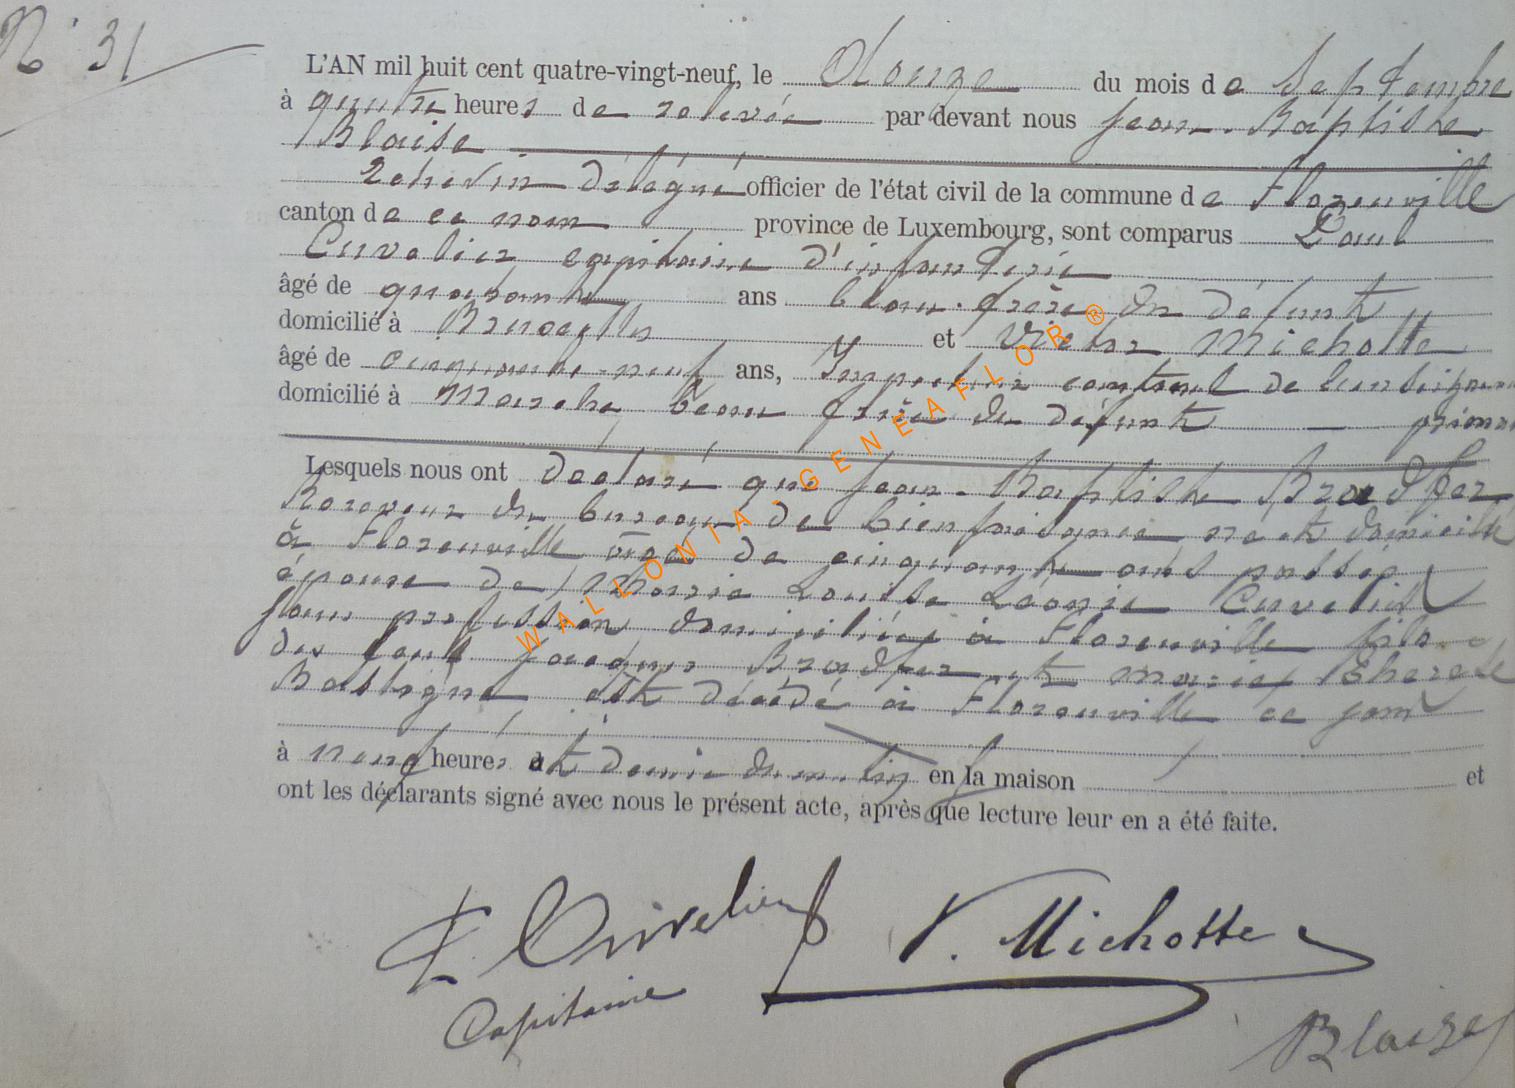 N° 31
L'AN mil huit cent quatre-vingt-neuf, le douze du mois de Septembre
à quatre heures de relevée par devant nous Jean-Baptiste
Blaise
Echevin délégué officier de l'état civil de la commune de Florenville
canton de ce nom province de Luxembourg, sont comparus Paul
Cuvelier capitaine d'infanterie
âgé de quarante ans beau-frère du défunt
domicilié à Bruxelles et Victor Michotte
âgé de cinquante-neuf ans, Inspecteur cantonal de l'enseignement
domicilié à Marche beau frère du défunt primaire
Lesquels nous ont déclaré que Jean-Baptiste Bradfer
Receveur du bureau de bienfaisance né et domicilié
à Florenville âgé de cinquante ans passés
époux de Marie Louise Léonie Cuvelier
sans profession domiciliée à Florenville fils
des feus Jacques Bradfer et Marie Thérèse
Bastogne est décédé à Florenville ce jour
à neuf heures et demie du matin en la maison et
ont les déclarants signé avec nous le présent acte, après que lecture leur en a été faite.
Cuvelier V. Michotte
Capitaine
Blaise
WALLONIA-GENEAFLOR®